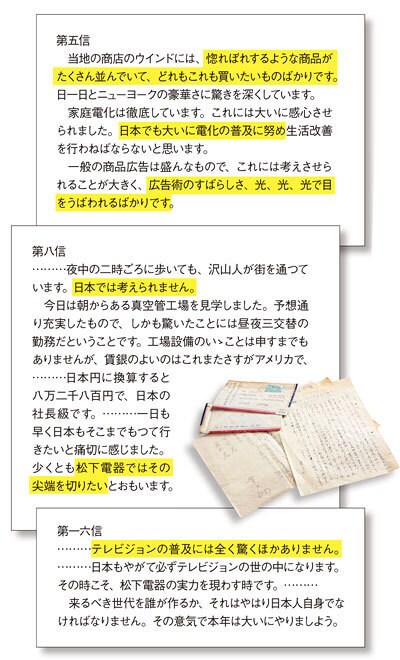 第五信
当地の商店のウインドには、惚れぼれするような商品が
たくさん並んでいて、どれもこれも買いたいものばかりです。
日一日とニューヨークの豪華さに驚きを深くしています。
家庭電化は徹底しています。これには大いに感心させ
られました。日本でも大いに電化の普及に努め生活改善
を行わねばならないと思います。
一般の商品広告は盛んなもので、これには考えさせら
れることが大きく、広告術のすばらしさ、光、光、光で目
をうばわれるばかりです。
第八信
………夜中の二時ごろに歩いても、沢山人が街を通つて
います。日本では考えられません。
今日は朝からある真空管工場を見学しました。予想通
り充実したもので、しかも驚いたことには昼夜三交替の
勤務だということです。工場設備のいゝことは申すまでも
ありませんが、賃銀のよいのはこれまたさすがアメリカで、
………日本円に換算すると
八万二千八百円で、日本の
社長級です。………一日も
早く日本もそこまでもつて行
きたいと痛切に感じました。
少くとも松下電器ではその
尖端を切りたいとおもいます。
第一六信
………テレビジョンの普及には全く驚くほかありません。
………日本もやがて必ずテレビジョンの世の中になります。
その時こそ、松下電器の実力を現わす時です。………
来るべき世代を誰が作るか、それはやはり日本人自身でな
ければなりません。その意気で本年は大いにやりましよう。